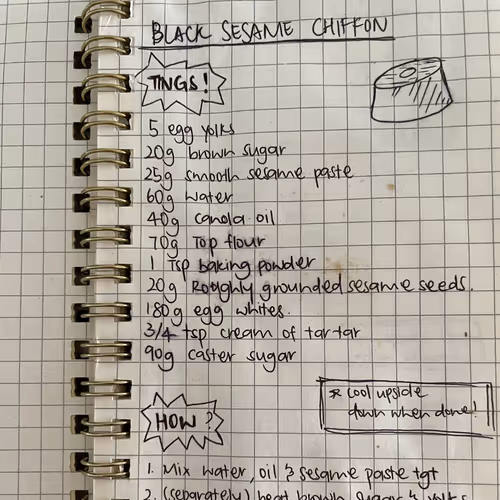 BLACK SESAME CHIFFON
TINGS!
5 egg yolks
20g brown sugar
25g smooth sesame paste
60g water
40g canola oil
70g Top flour
1 Tsp baking powder
20g Roughly grounded sesame seeds.
180g egg whites.
3/4 tsp cream of tartar
90g caster sugar
* cool upside
down when done!
HOW?
1. Mix water, oil & sesame paste tgt
2. (separately) beat brown sugar & yolks